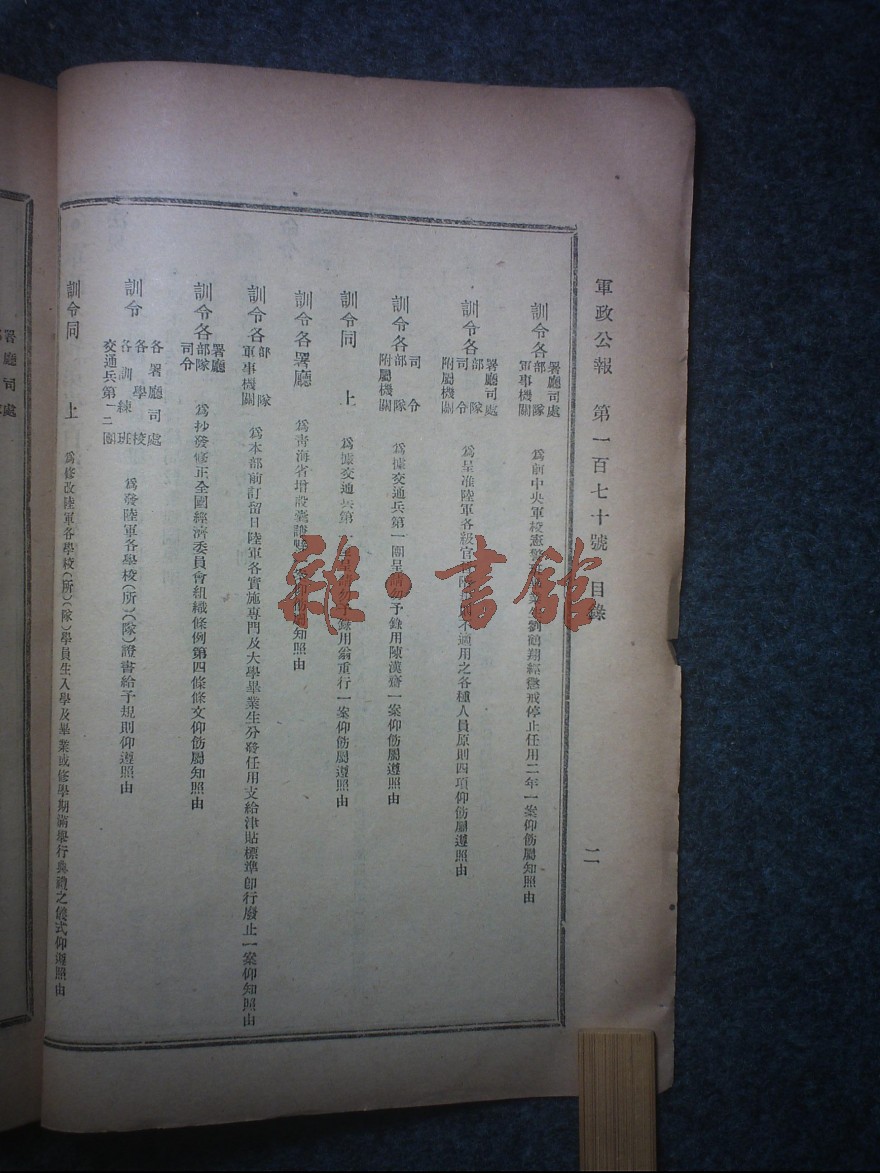 軍政公報 第一百七十號 目錄 二
訓令各署廳司處部隊軍事機關 為前中央軍校憲警 劉鶴翔經懲戒停止任用二年一案仰飭屬知照由
訓令各署廳司處部隊司令附屬機關 為呈准陸軍各級官 適用之各種人員原則四項仰飭屬遵照由
訓令各司令部隊附屬機關 為據交通兵第一團呈請勿予錄用陳漢齋一案仰飭屬遵照由
訓令同上 為據交通兵第一 勿予錄用翁重行一案仰飭屬遵照由
訓令各署廳 為青海省增設 仰飭屬知照由
訓令各部隊軍事機關 為本部前訂留日陸軍各實施專門及大學畢業生分發任用支給津貼標準卽行廢止一案仰知照由
訓令各署廳部隊司令 為抄發修正全國經濟委員會組織條例第四條條文仰飭屬知照由
訓令各署廳司處各學校各訓練班交通兵第一二團 為發陸軍各學校(所)(隊)證書給予規則仰遵照由
訓令同上 為修改陸軍各學校(所)(隊)學員生入學及畢業或修學期滿舉行典禮之儀式仰遵照由
雜·書館
署
廳
司
處